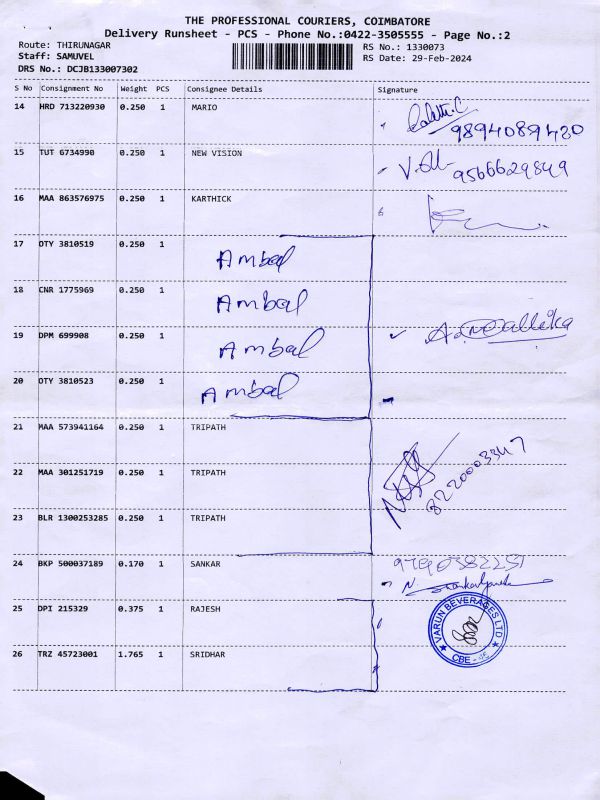 THE PROFESSIONAL COURIERS, COIMBATORE
Delivery Runsheet - PCS - Phone No.:0422-3505555 - Page No.:2
Route: THIRUNAGAR RS No.: 1330073
Staff: SAMUVEL RS Date: 29-Feb-2024
DRS No.: DCJB133007302
S No Consignment No Weight PCS Consignee Details Signature
14 HRD 713220930 0.250 1 MARIO
9894089420
15 TUT 6734990 0.250 1 NEW VISION
9566629849
16 MAA 863576975 0.250 1 KARTHICK
17 OTY 3810519 0.250 1 Ambal
18 CNR 1775969 0.250 1 Ambal
19 DPM 699908 0.250 1 Ambal
20 OTY 3810523 0.250 1 Ambal
21 MAA 573941164 0.250 1 TRIPATH
22 MAA 301251719 0.250 1 TRIPATH
8220003347
23 BLR 1300253285 0.250 1 TRIPATH
24 BKP 500037189 0.170 1 SANKAR
25 DPI 215329 0.375 1 RAJESH
VARUN BEVERAGES LTD
CBE
26 TRZ 45723001 1.765 1 SRIDHAR